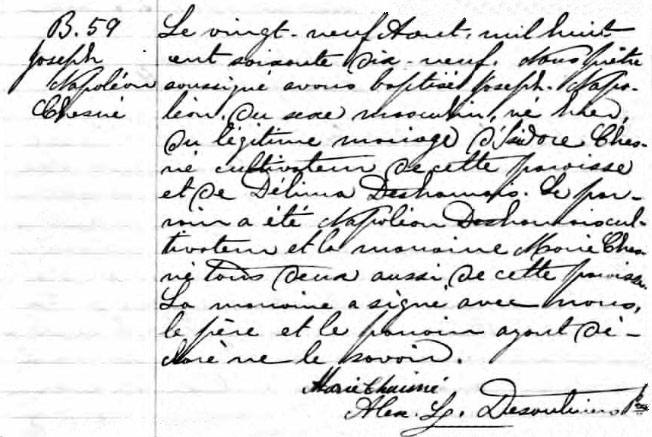 B. 59
Joseph
Napoléon
Chesné
Le vingt-neuf Aout, mil huit
cent soixante dix-neuf. Nous prêtre
soussigné avons baptisé Joseph-Napo-
léon, du sexe masculin, né hier,
du légitime mariage d'Isidore Ches-
né cultivateur de cette paroisse
et de Délima Deshamais. Le par-
rain a été Napoléon Deshamais cul-
tivateur et la marraine Marie Ches-
né tous deux aussi de cette paroisse.
La marraine a signé avec nous,
le père et le parrain ayant dé-
claré ne le savoir.
Marie Chainé
Alex. L. Desaulniers Ptre